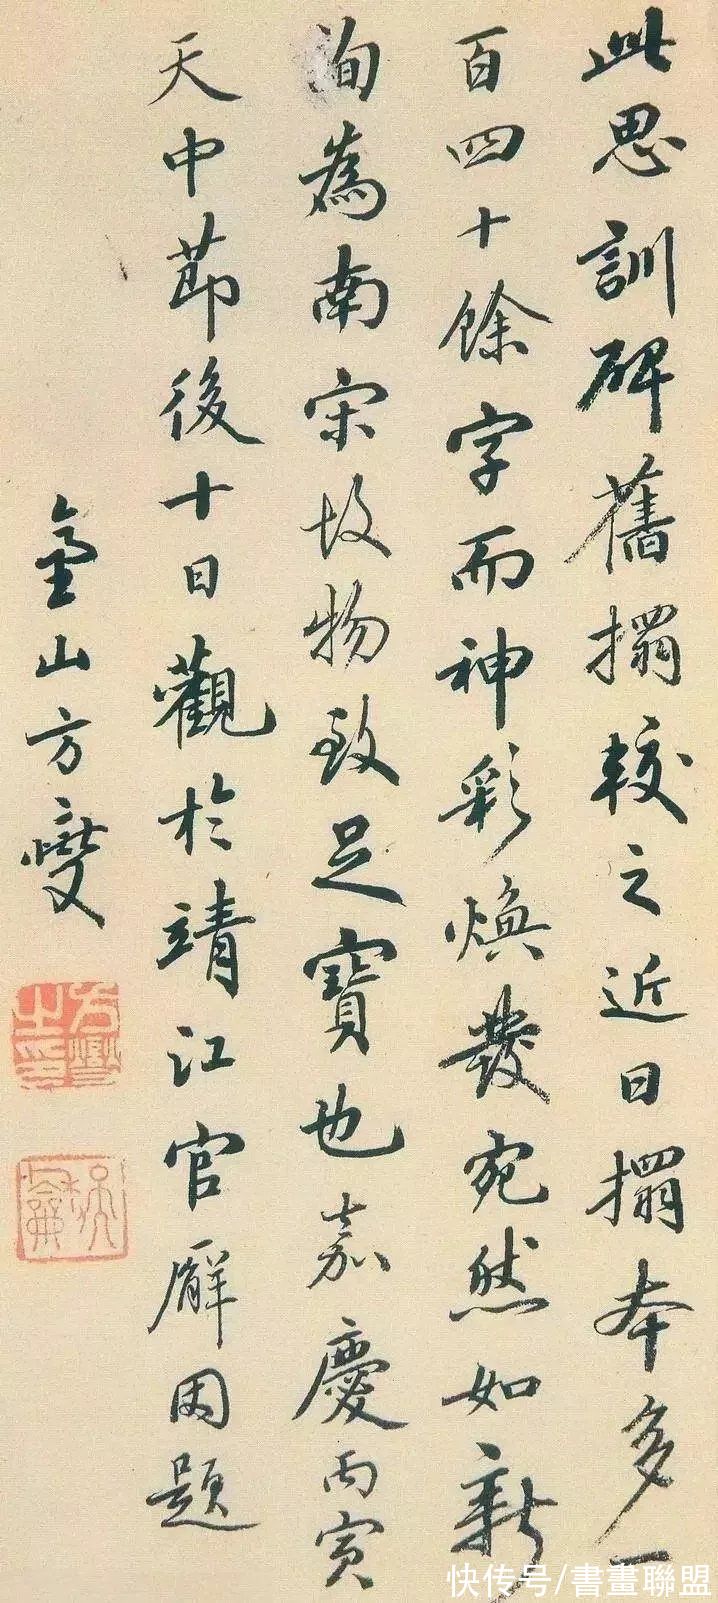 此思訓碑舊搨較之近日搨本多一
百四十餘字而神彩煥發宛然如新
洵為南宋故物致足寶也嘉慶丙寅
天中節後十日觀於靖江官廨因題
金山方燮
方燮之印
快传号/書畫聯盟